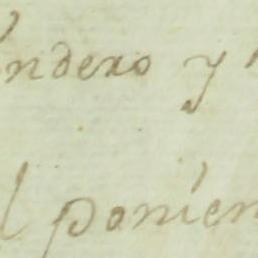 ndero y
l ponien